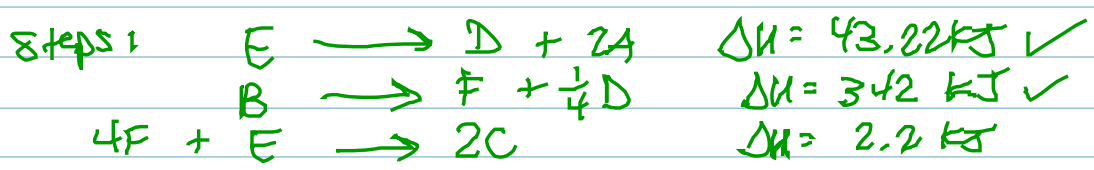 steps: E → D + 2A ΔH = 43.22 kJ ✓
B → F + 1/4 D ΔH = 342 kJ ✓
4F + E → 2C ΔH = 2.2 kJ